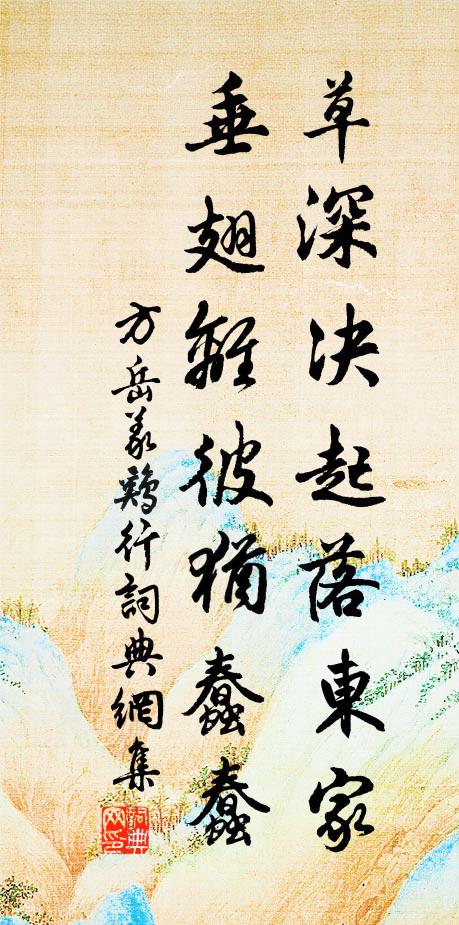 草深決起落東家
垂翅雛彼猶蠢蠢
方岳義鶏行詞典網集
詞典